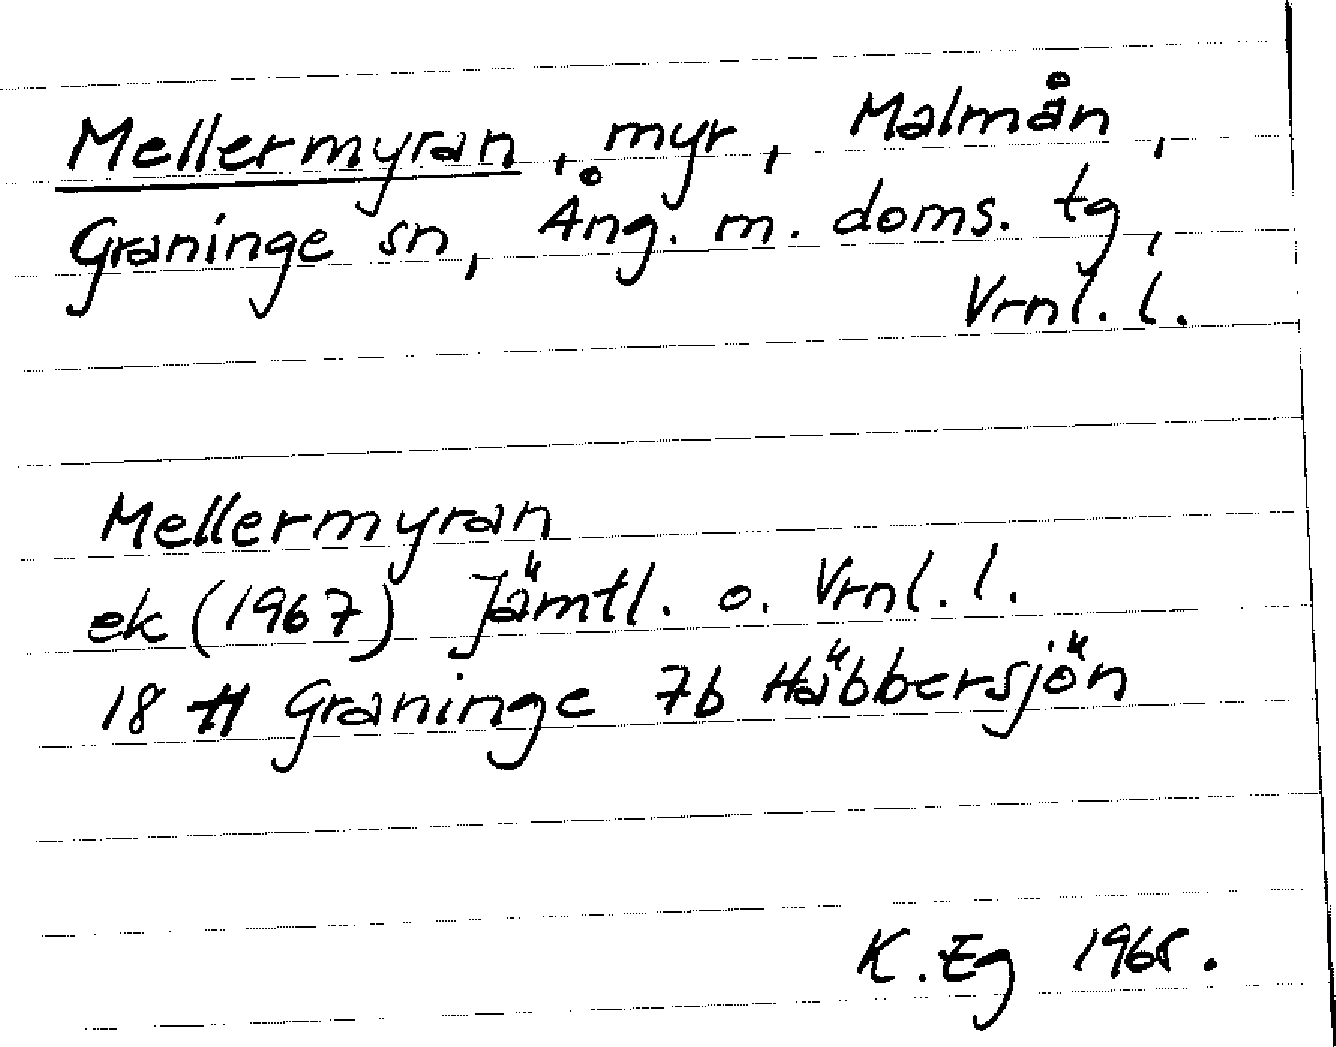 Mellermyran, myr, Malmån,
Graninge sn, Ång. m. doms. tg,
Vrnl. l.
Mellermyran
ek (1967) Jämtl. o. Vrnl. l.
18 H Graninge 7b Häbbersjön
K. Eg 1968.